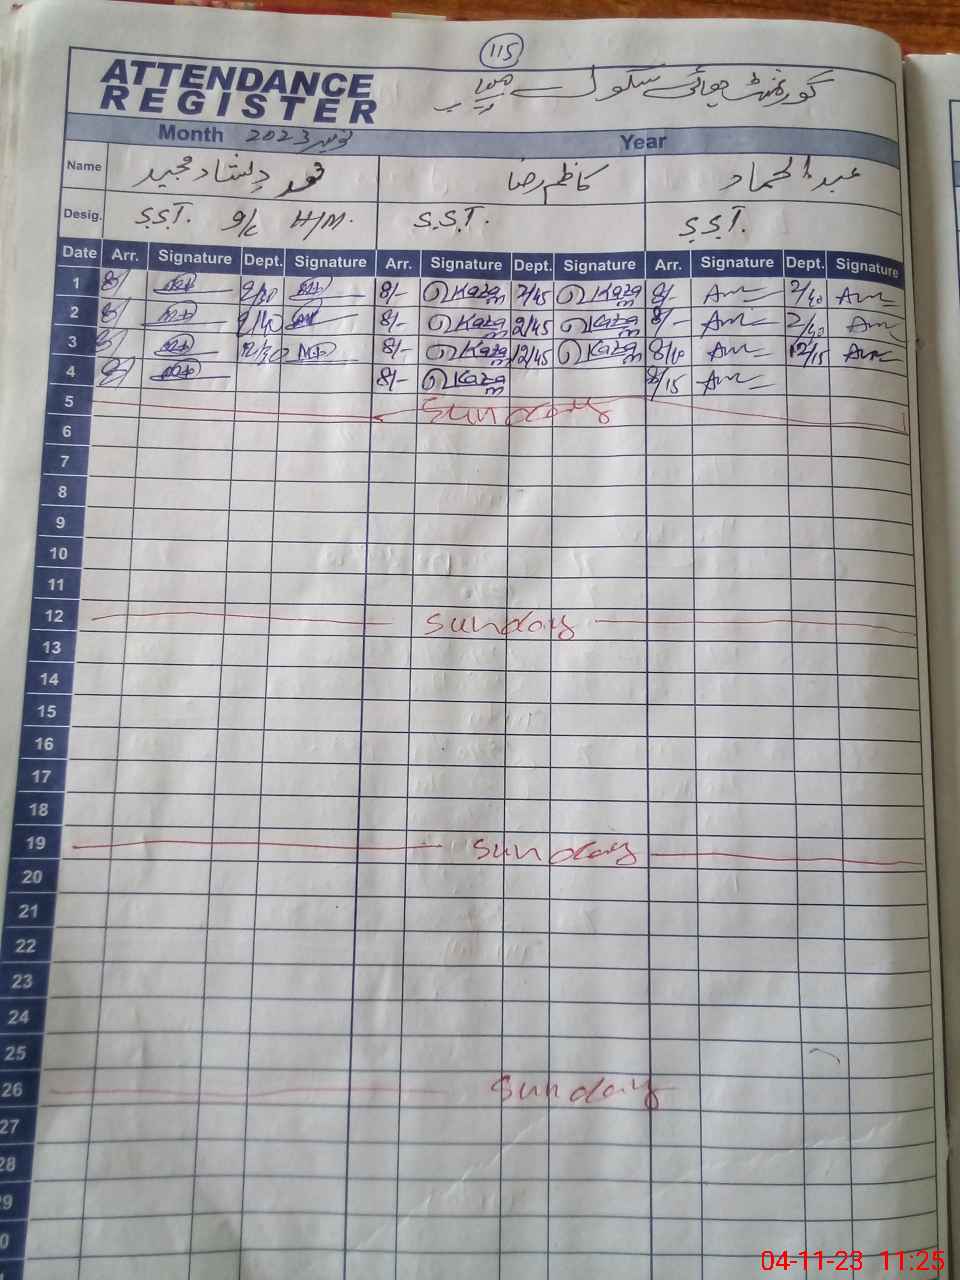 115
ATTENDANCE REGISTER
گورنمنٹ ہائی سکول
Month نومبر 2023 Year
Name محمد دلشاد مجید کاظم رضا
Desig. S.S.T. I/C H/M. S.S.T. S.S.T.
Date Arr. Signature Dept. Signature Arr. Signature Dept. Signature Arr. Signature Dept. Signature
1 8/ 2/30 8/- Kazam 2/45 Kazam 8/- 2/40
2 8/ 2/40 8/- Kazam 2/45 Kazam 8/- 2/40
3 8/ 12/30 8/- Kazam 12/45 Kazam 8/10 12/15
4 8/ 8/- Kazam 8/15
5 Sunday
6
7
8
9
10
11
12 Sunday
13
14
15
16
17
18
19 Sunday
20
21
22
23
24
25
26 Sunday
27
28
29
04-11-23 11:25